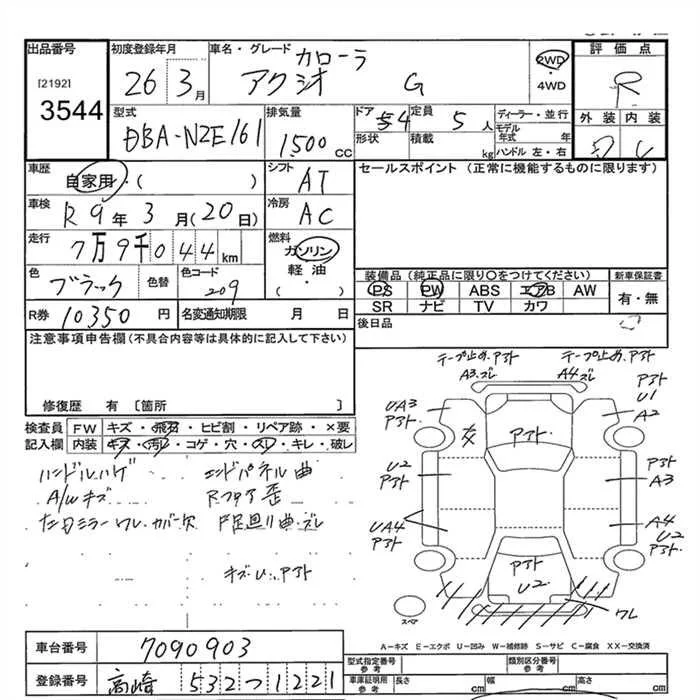 出品番号
[2192]
3544
初度登録年月
26 3月
車名・グレード カローラ
アクシオ G
2WD
・
4WD
評価点
R
外装 内装
型式
DBA-NZE161
排気量
1500 cc
ドア 4
形状
定員 5人
積載 kg
ディーラー・並行
モデル年式 年
ハンドル 左・右
車歴
自家用・( )
シフト
AT
車検
R9年3月(20日)
冷房
AC
走行
7万9千044km
燃料
ガソリン
軽油
( )
色
ブラック
色替
色コード
209
R券 10350円
名変通知期限 月 日
セールスポイント (正常に機能するものに限ります)
装備品(純正品に限り○をつけてください)
PS PW ABS エアB AW
SR ナビ TV カワ
新車保証書
有・無
後日品
注意事項申告欄(不具合内容等は具体的に記入して下さい)
修復歴 有 〔箇所 〕
検査員記入欄
FW キズ・飛石・ヒビ割・リペア跡・×要
内装 キズ・汚れ・コゲ・穴・スレ・キレ・破レ
ハンドルハゲ
エンドパネル曲
A/Wキズ
Rフロア歪
左ドアミラーワレ・カバー欠
下廻り曲・ズレ
キズ・U・アト
テープ止め、アト
A3、ズレ
テープ止め、アト
A4ズレ
UA3
アト
アト
U1
A2
アト
U2
アト
アト
A3
UA4
アト
A4
U2
アト
アト
U2
ワレ
スペア
A-キズ E-エクボ U-凹み W-補修跡 S-サビ C-腐食 XX-交換済
車台番号
7090903
登録番号
高崎 532つ1221
型式指定番号
参考
類別区分番号
参考
車庫証明用
参考
長さ cm
幅 cm
高さ cm